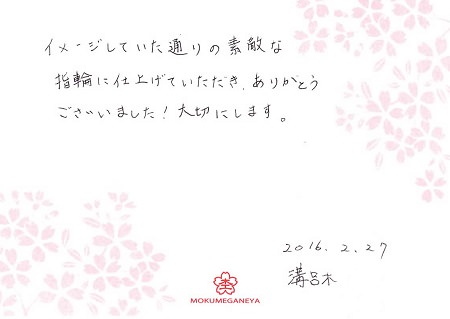 イメージしていた通りの素敵な
指輪に仕上げていただき、ありがとう
ございました！大切にします。
2016.2.27
溝呂木
MOKUMEGANEYA